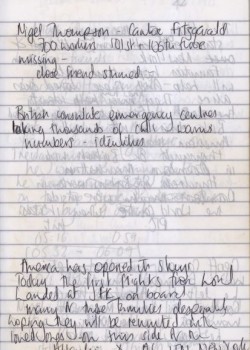 Nigel Thompson - Cantor Fitzgerald
700 workers 101st - 105th floor
missing -
close friend stunned -
British consulate emergency centres
taking thousands of calls names
numbers - identities
America has opened its skies
Today the first flights from London
landed at JFK on board
many N more families desperately
hoping they will be reunited with
loved ones on this side of the